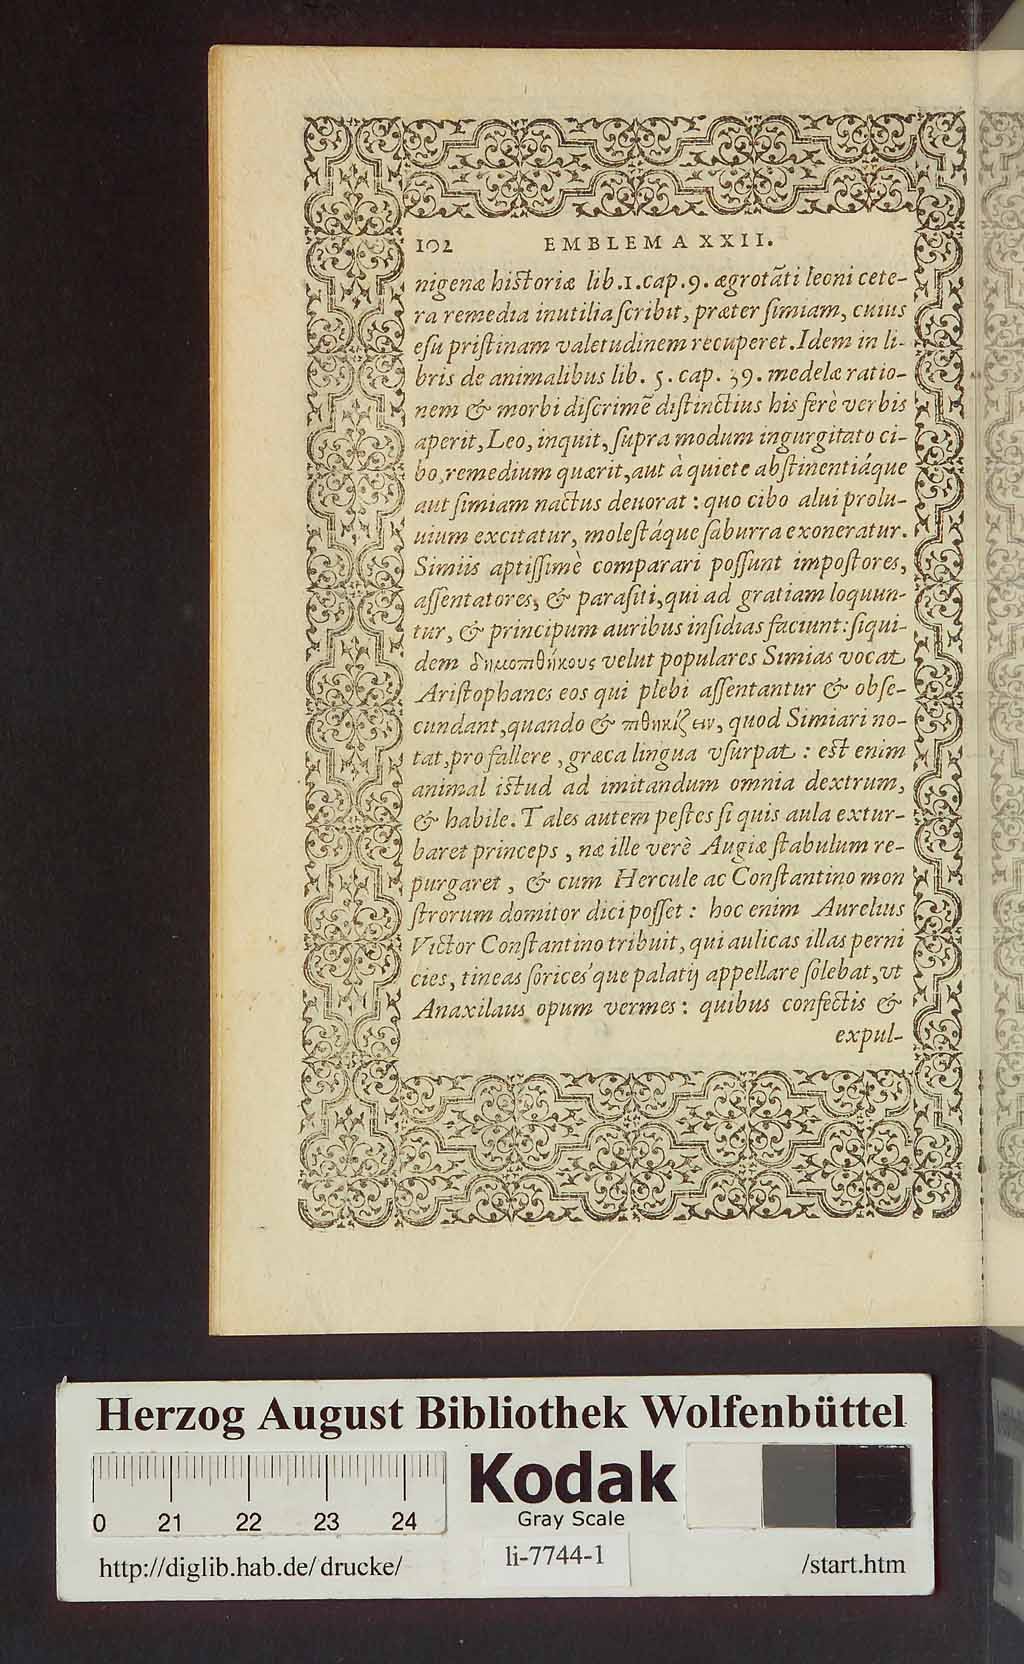 102 EMBLEMA XXII.
nigenæ historiæ lib.1.cap.9. ægrotãti leoni cete-
ra remedia inutilia scribit, præter simiam, cuius
esu pristinam valetudinem recuperet. Idem in li-
bris de animalibus lib. 5. cap. 39. medelæ ratio-
nem & morbi discrimẽ distinctius his ferè verbis
aperit, Leo, inquit, supra modum ingurgitato ci-
bo, remedium quærit, aut à quiete abstinentiáque
aut simiam nactus deuorat: quo cibo alui prolu-
uium excitatur, molestáque saburra exoneratur.
Simiis aptissimè comparari possunt impostores,
assentatores, & parasiti, qui ad gratiam loquun-
tur, & principum auribus insidias faciunt: siqui-
dem δημοπιθήκους velut populares Simias vocat
Aristophanes eos qui plebi assentantur & obse-
cundant, quando & πιθηκίζειν, quod Simiari no-
tat, pro fallere, græca lingua vsurpat: est enim
animal istud ad imitandum omnia dextrum,
& habile. Tales autem pestes si quis aula extur-
baret princeps, næ ille verè Augiæ stabulum re-
purgaret, & cum Hercule ac Constantino mon
strorum domitor dici posset: hoc enim Aurelius
Victor Constantino tribuit, qui aulicas illas perni
cies, tineas sorices'que palatij appellare solebat, vt
Anaxilaus opum vermes: quibus confectis &
expul-
Herzog August Bibliothek Wolfenbüttel
Kodak
Gray Scale
0 21 22 23 24
li-7744-1
http://diglib.hab.de/drucke/ /start.htm